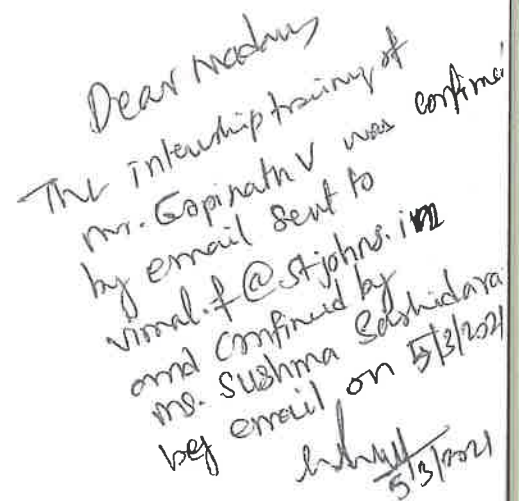 Dear Madam
The internship training of
Mr. Gopinath V was confirme
by email sent to
vimal.f@stjohns.in
and confirmed by
Ms. Sushma Sashidara
by email on 5/3/2021
5/3/2021